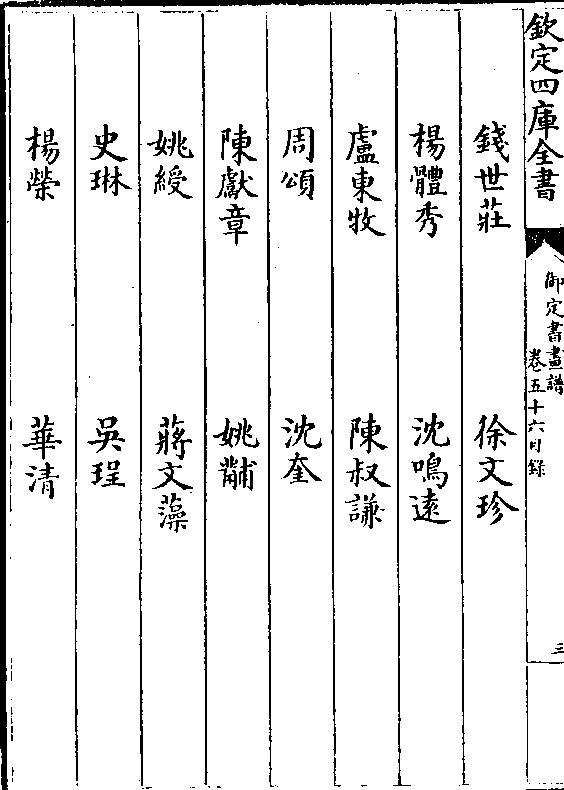 欽定四庫全書
御定書畫譜
卷五十六目錄
三
錢世莊 徐文珍
楊體秀 沈鳴遠
盧東牧 陳叔謙
周頌 沈奎
陳獻章 姚黼
姚綬 蔣文藻
史琳 吳珵
楊榮 華清